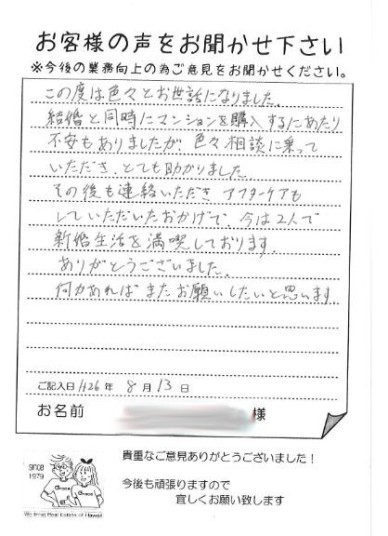 お客様の声をお聞かせ下さい
※今後の業務向上の為ご意見をお聞かせください。
この度は色々とお世話になりました。
結婚と同時にマンションを購入するにあたり
不安もありましたが、色々相談に乗って
いただき、とても助かりました。
その後も連絡いただき アフターケアも
していただいたおかげで、今は2人で
新婚生活を満喫しております。
ありがとうございました。
何かあれば またお願いしたいと思います
ご記入日 H26年 8月 13日
お名前 様
貴重なご意見ありがとうございました!
今後も頑張りますので
宜しくお願い致します
since
1979